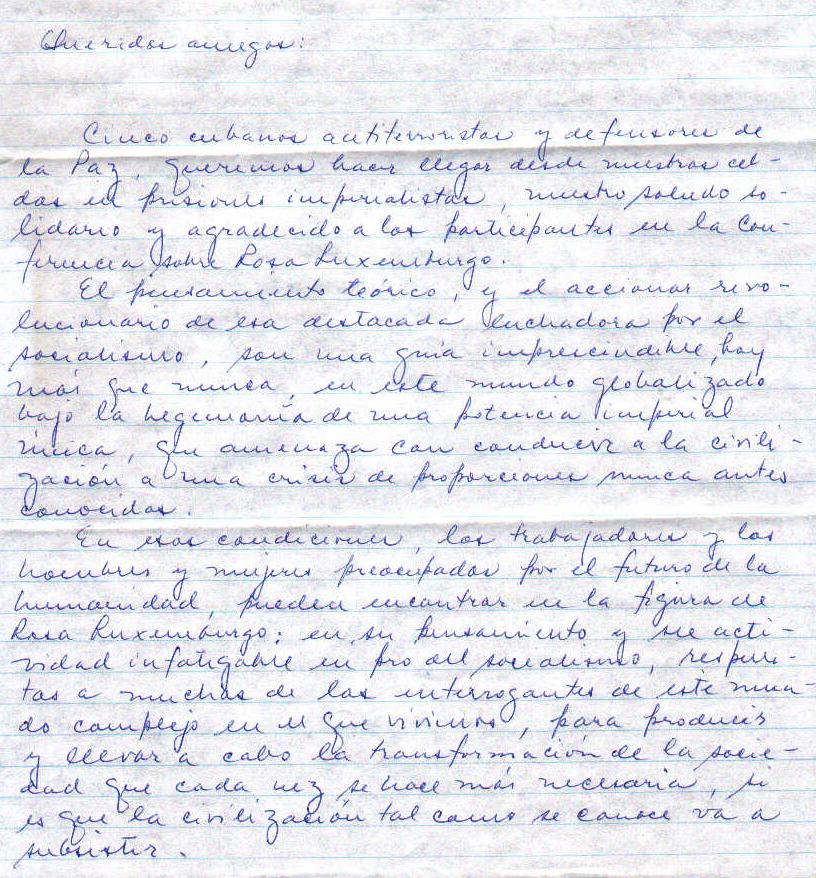 Queridos amigos:
Cinco cubanos antiterroristas y defensores de
la Paz, queremos hacer llegar desde nuestras cel-
das en prisiones imperialistas, nuestro saludo so-
lidario y agradecido a los participantes en la Con-
ferencia sobre Rosa Luxemburgo.
El pensamiento teórico, y el accionar revo-
lucionario de esa destacada luchadora por el
socialismo, son una guía imprescindible, hoy
más que nunca, en este mundo globalizado
bajo la hegemonía de una potencia imperial
única, que amenaza con conducir a la civili-
zación a una crisis de proporciones nunca antes
conocidas.
En esas condiciones, los trabajadores y los
hombres y mujeres preocupados por el futuro de la
humanidad, pueden encontrar en la figura de
Rosa Luxemburgo; en su pensamiento y su acti-
vidad infatigable en pro del socialismo, respues-
tas a muchas de las interrogantes de este mun-
do complejo en el que vivimos, para producir
y llevar a cabo la transformación de la socie-
dad que cada vez se hace más necesaria, si
es que la civilización tal como se conoce va a
subsistir.